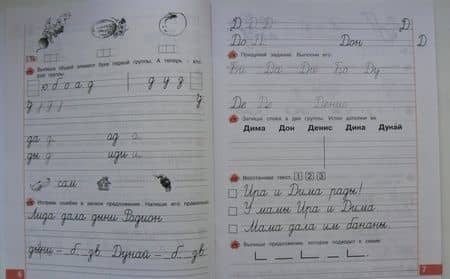 Выпиши общий элемент букв первой группы. А теперь – вто-
рой группы.
ю б о а д
д у д з
д
да д. ад а
ды д иди и.
сам
Исправь ошибки в записи предложения. Напиши его правильно.
Лида дала дыни Радион
дыни – б. зв. Дунай – б. зв.
6
Д Д Д Д
До П. Дон Д
Придумай задание. Выполни его.
Би Да До Бо Ду
Де Ре Денис
Запиши слова в две группы. Устно дополни их.
Дима Дон Денис Дина Дунай
Восстанови текст. 1 2 3
Ира и Дима рады!
У мамы Ира и Дима.
Мама дала им бананы.
Выпиши предложение, которое подходит к схеме.
7